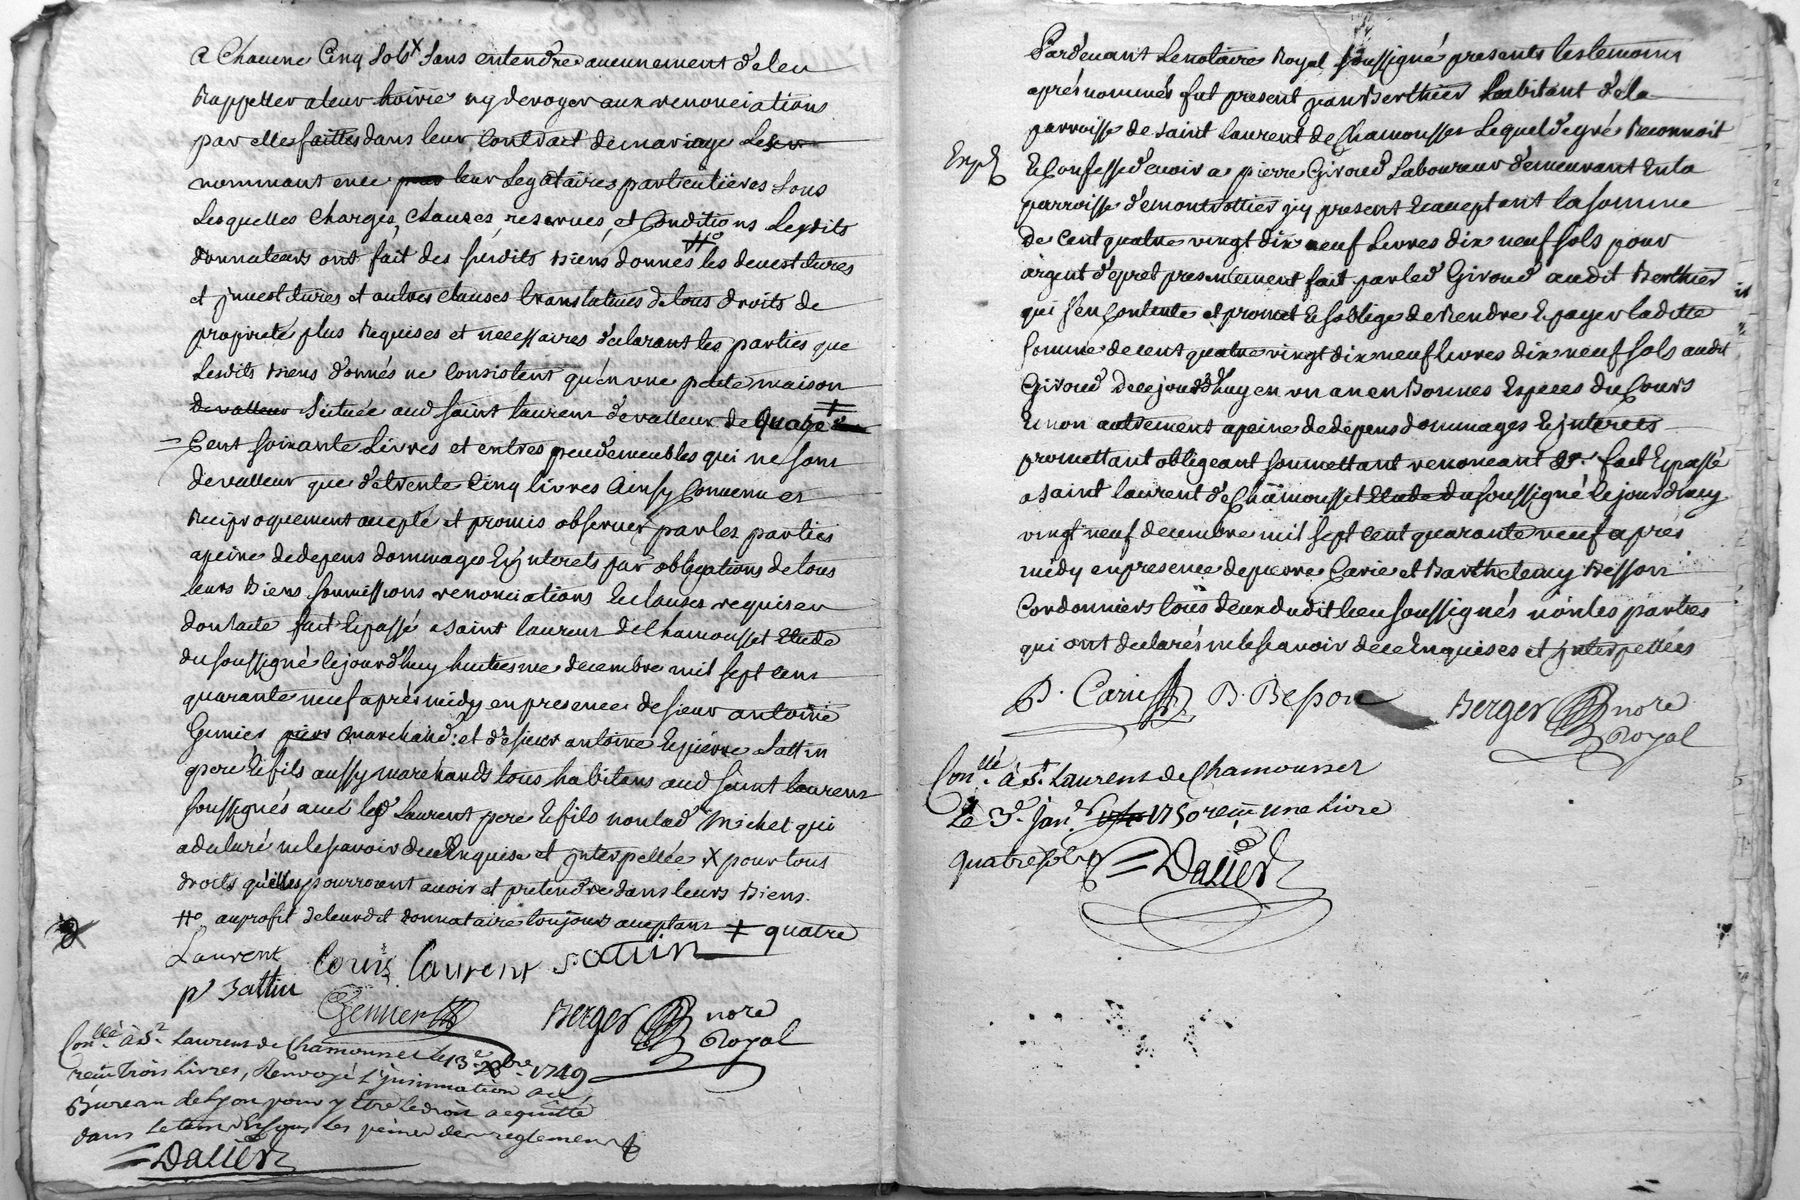 a Chacune Cinq sols X sans entendre aucunement de les
Rappeller a leur hoirie ny deroger aux renonciations
par elles faittes dans leur Contract de mariage Les
nommant en ce leur Legataires particulieres sous
Lesquelles charges, clauses, reserves, et Conditions Lesdits
donnateurs ont fait des susdits Biens donnés #o les devestitures
et jnvestitures et autres clauses translatives de tous droits de
proprieté plus Requises et necessaires declarant les parties que
Lesdits Biens donnés ne Consistent qu'en une petite maison
de valleur scituée aud saint laurent de valleur de ‡
= Cent soixante Livres et entres peu de meubles qui ne sont
de valleur que de trente Cinq livres Ainsy Convenu et
Reciproquement accepté et promis observer par les parties
a peine de depens dommages & jnterets par obligations de tous
leurs Biens soumissions renonciations & clauses requises
dont acte fait & passé a saint laurent de Chamousset Etude
du soussigné le jourd'huy huitiesme decembre mil sept cent
quarante neuf aprés midy en presence de sieur antoine
Gemier marchand: et de sieur antoine & pierre Sattin
pere & fils aussy marchands tous habitans aud saint laurens
soussignés avec led Laurent pere & fils non lad Michet qui
a declaré ne le scavoir de ce Enquise et jnterpellée X pour tous
droits qu'elles pourroient avoir et pretendre dans leurs Biens.
#o au profit de leurdit donnataire toujours acceptant ‡ quatre
Laurent Louis Laurent Sattin
p' Sattin
Gemier Berger nore
Royal
Conllé à St Laurens de Chamousset le 13e Xbre 1749
reçu trois Livres, Renvoyé l'jnsinuation au
Bureau de Lyon pour y être le droit acquitté
dans le tems & sous les peines des reglemens
= Dalier
Pardevant Le notaire Royal soussigné presents les temoins
aprés nommés fut present jean Berthier habitant de la
parroisse de saint laurent de Chamousset Lequel de gré Reconnoit
Exp
& Confesse devoir a pierre Giroud Laboureur demeurant en la
parroisse de montrottier jcy present & acceptant la somme
de Cent quatre vingt dix neuf Livres dix neuf sols pour
argent de pret presentement fait par led Giroud audit Berthier
qui s'en Contente et promet & s'oblige de Rendre & payer laditte
somme de cent quatre vingt dix neuf livres dix neuf sols audit
Giroud de ce jourd'huy en un an en Bonnes Especes du Cours
& non autrement a peine de depens dommages & jnterets
promettant obligeant soumettant renonceant &a. fait & passé
a saint laurent de Chamousset Etude du soussigné le jourd'huy
vingt neuf decembre mil sept cent quarante neuf apres
midy en presence de pierre Carie et Barthelemy Besson
Cordonniers tous deux dudit lieu soussignés non les parties
qui ont declarés ne le scavoir de ce Enquises et jnterpellées
P. Carie B. Besson Berger nore
Royal
Conllé à St Laurens de Chamousset
Le 3e janer 1750 reçu une Livre
quatre sols
= Dalier